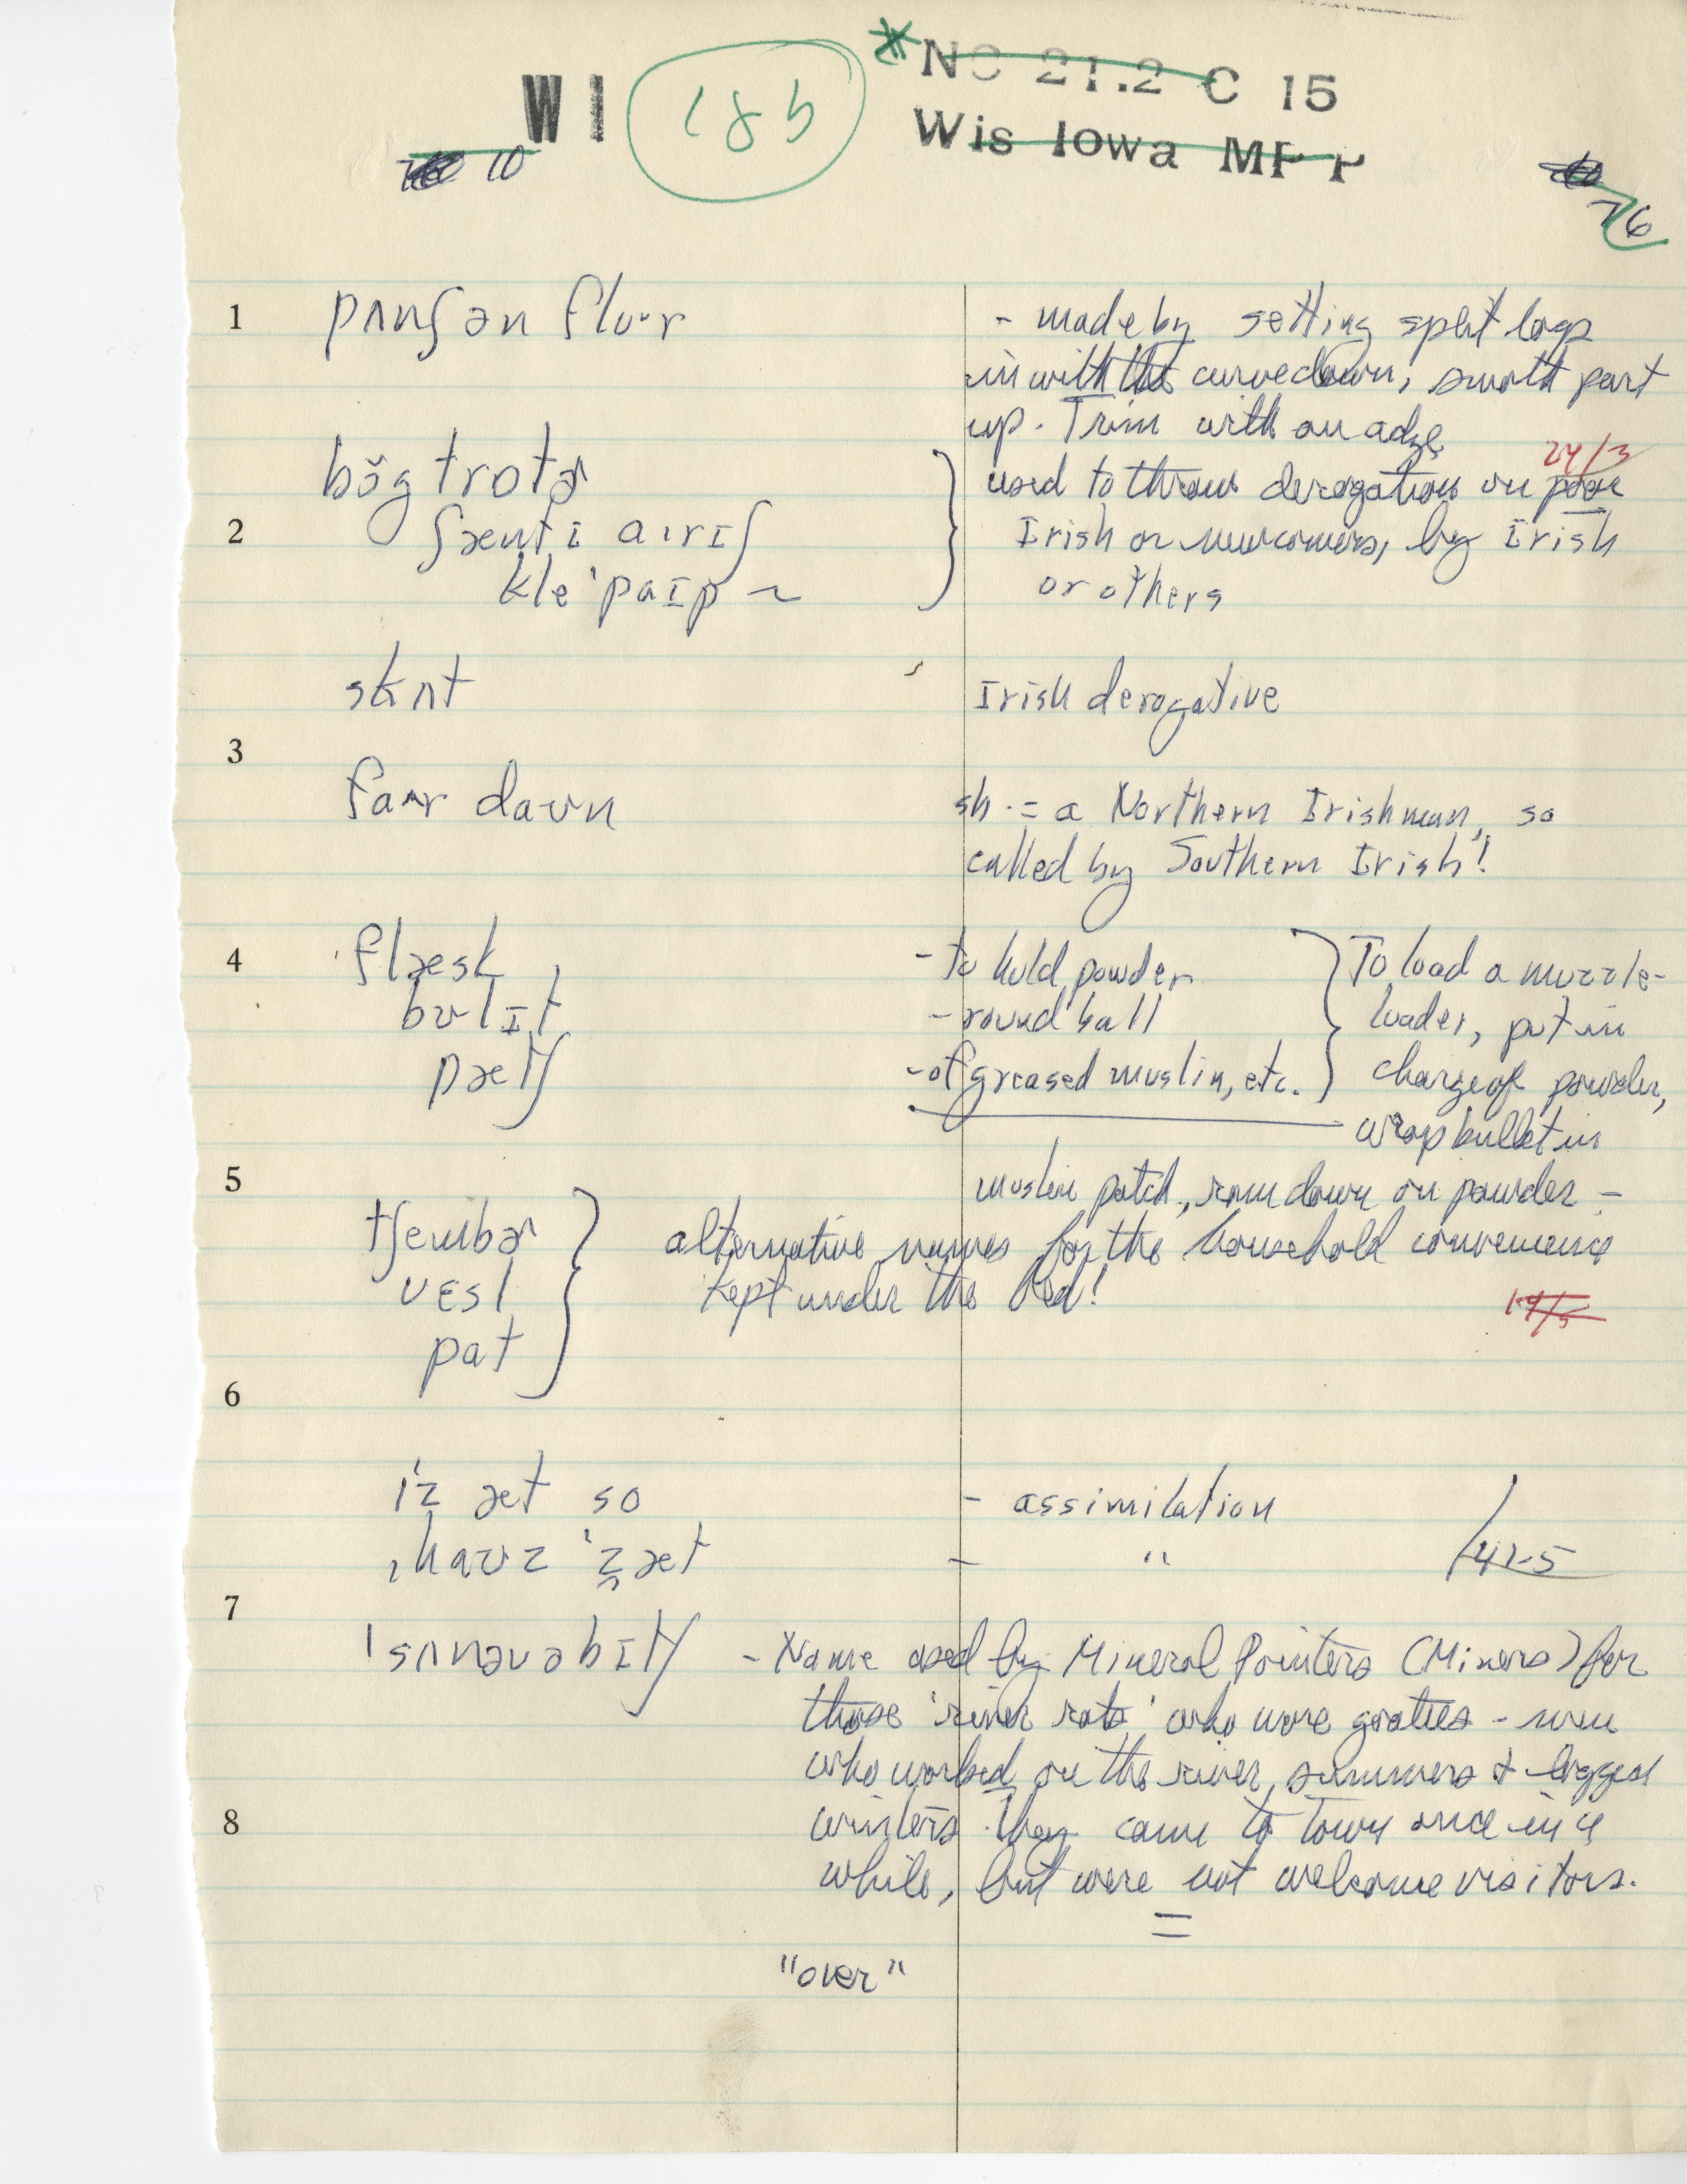 WI 189 *NC 21.2 C 15
Wis Iowa MP P
10
76
1 pʌnʃən flʊ·r - made by setting split logs
in with the curve down, smooth part
up. Trim with an adze
24/3
bɔ̆g trotɚ used to throw derogation on poor
2 ʃæntɪ aɪrɪʃ Irish or newcomers, by Irish
kle ˈpaɪp ~ or others
skʌt Irish derogative
3
faʌr daʊn sb. = a Northern Irishman, so
called by Southern Irish!
4 flæsk - to hold powder To load a muzzle-
bʊlɪt - round ball loader, put in
pætʃ - of greased muslin, etc. charge of powder,
wrap bullet in
5 muslin patch, ram down on powder -
tʃembɚ alternative names for the household convenience
vɛsl kept under the bed!
pat
14/5
6
ɪˈz æt so - assimilation
ˌhaʊz ˈz̪æt - " 141-5
7
ˈsʌnəvəbɪtʃ - Name used by Mineral Pointers (Miners) for
those 'river rats' who wore goatees - men
who worked on the river, summers & logged
8 winters. They came to town once in a
while, but were not welcome visitors.
=
"over"